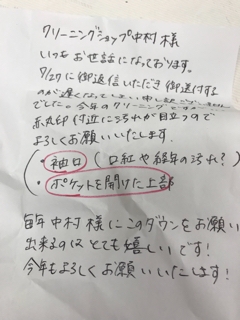 クリーニングショップ中村 様
いつもお世話になっております。
7/27に御返信いただき御送付する
のが遅くなってしまい申し訳ございません
でした。今年のクリーニングですが
赤丸印 付近に汚れが目立つので
よろしくお願いいたします。
・袖口(口紅や経年の汚れ?)
・ポケットを開けた上部
毎年 中村 様にこのダウンをお願い
出来るのは とても嬉しいです!
今年もよろしくお願いいたします!